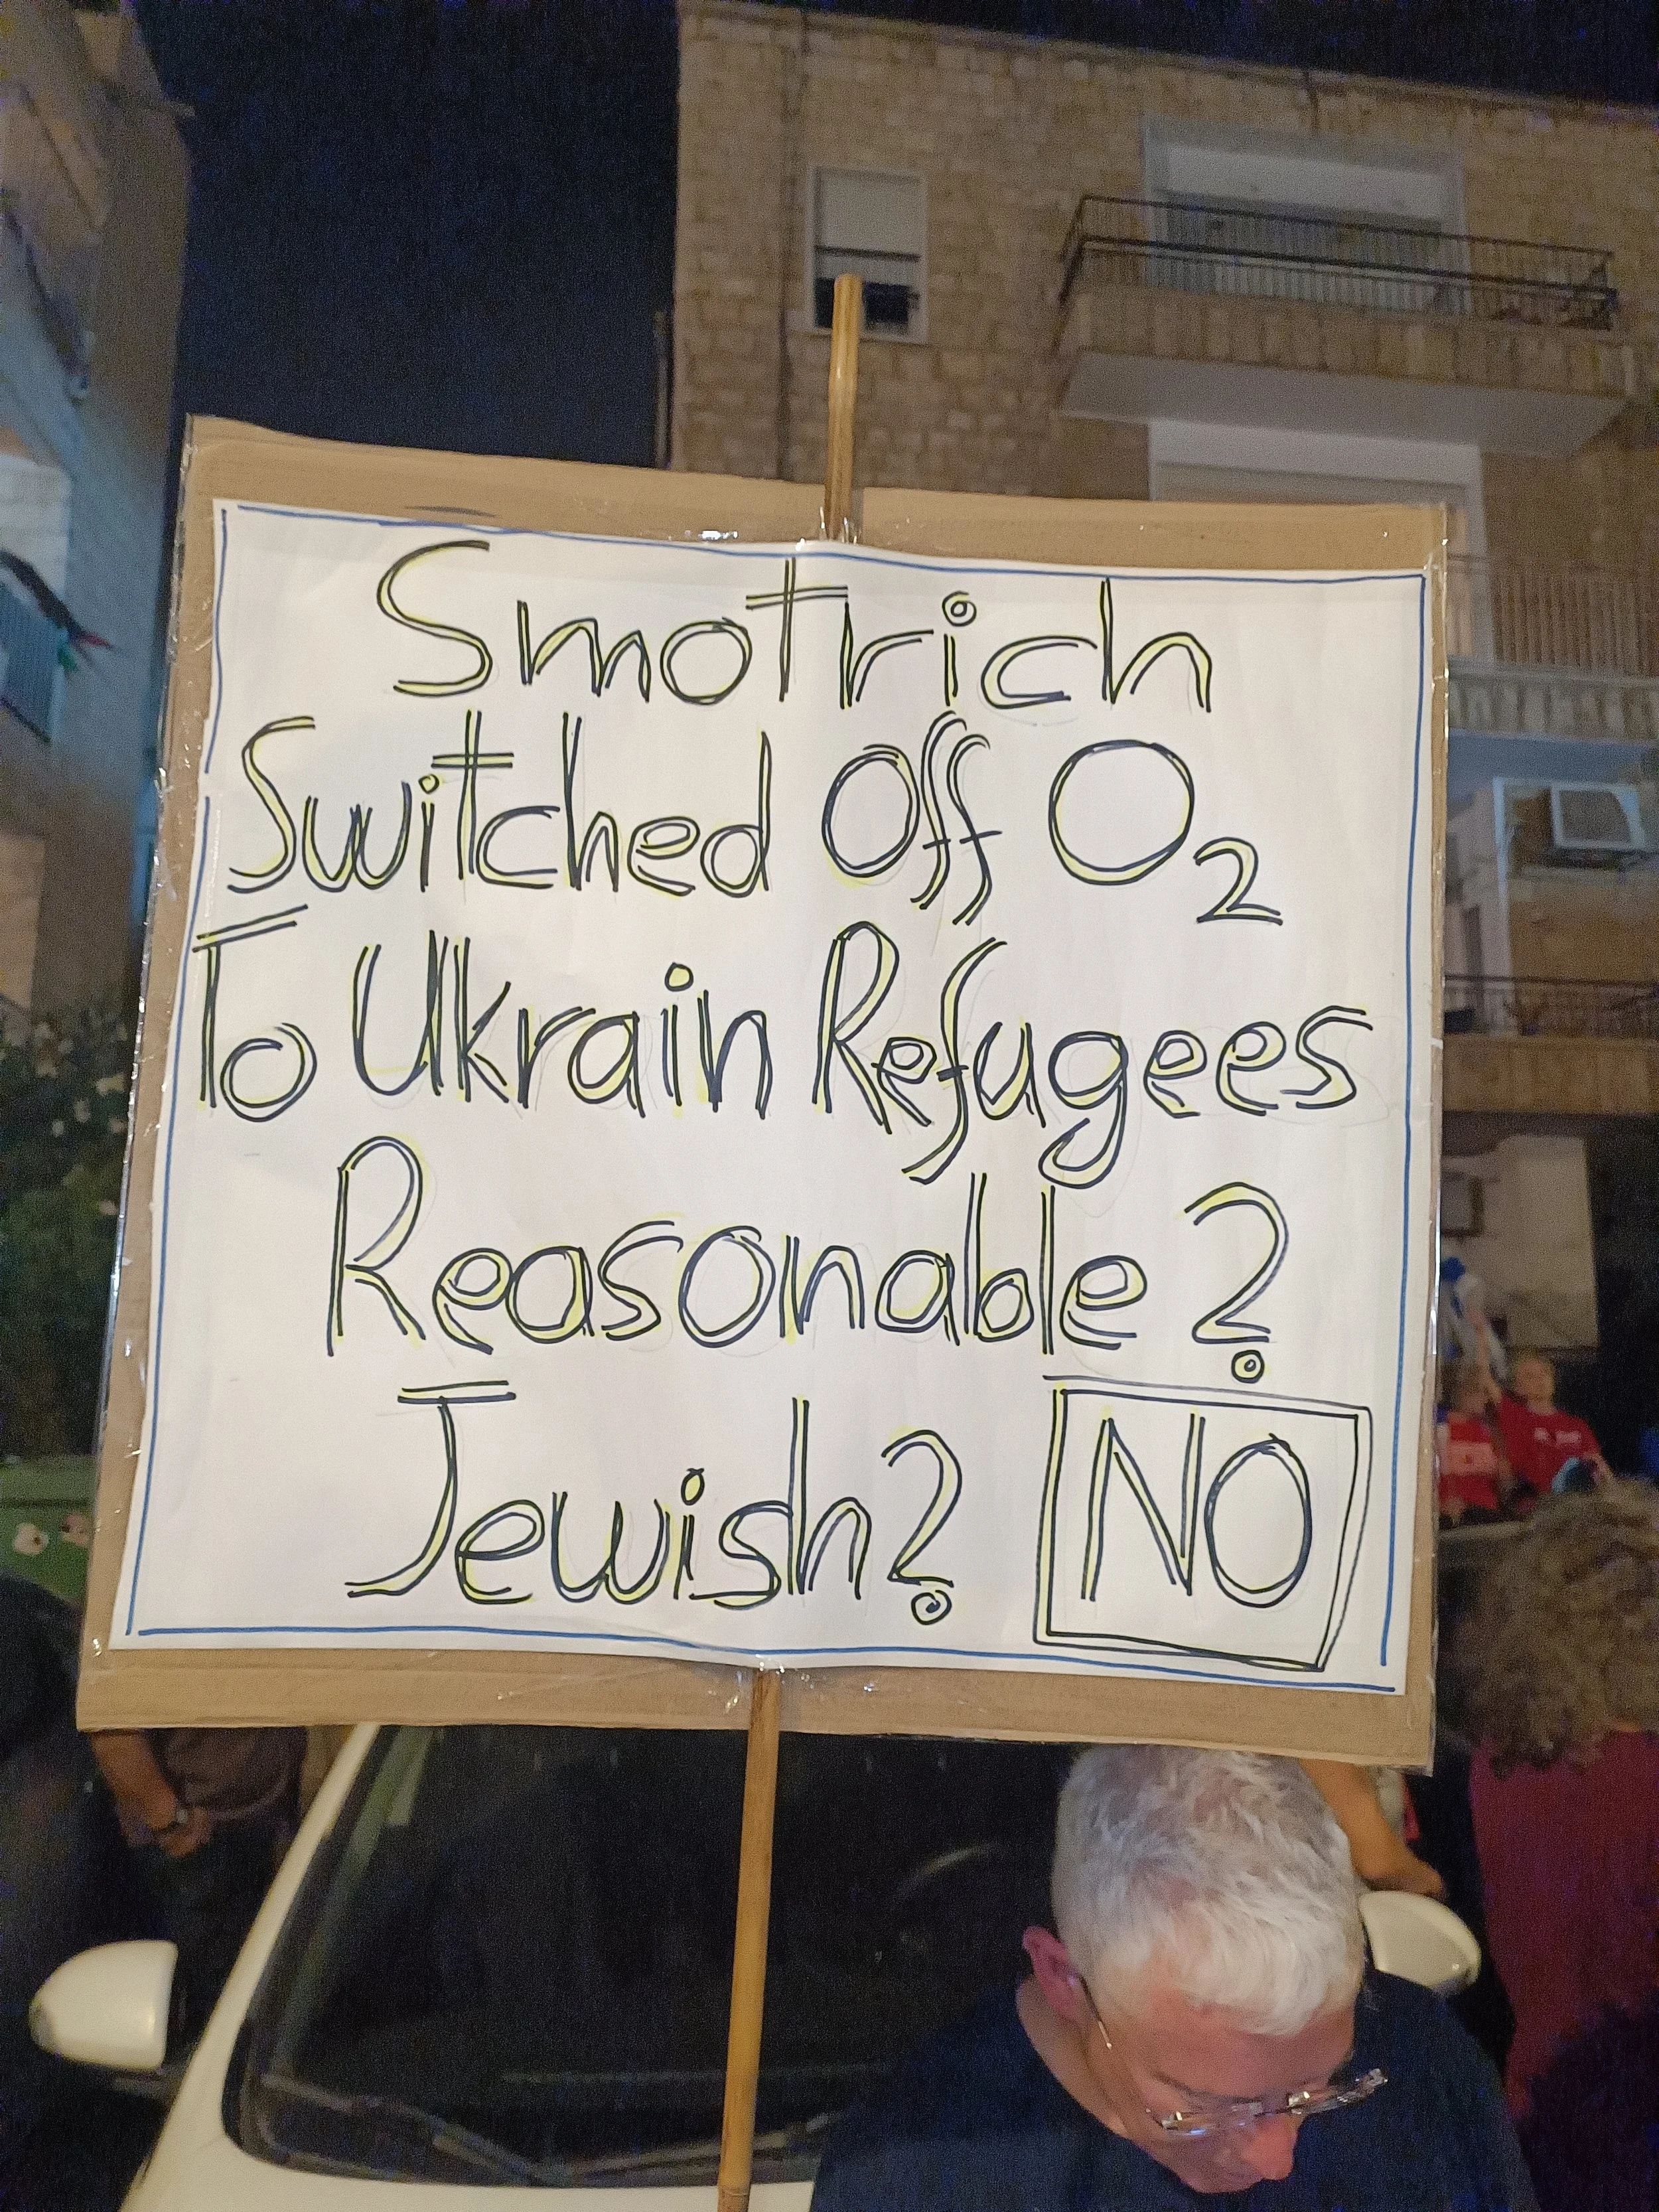 Smotrich
Switched Off O₂
To Ukrain Refugees
Reasonable?
Jewish? NO